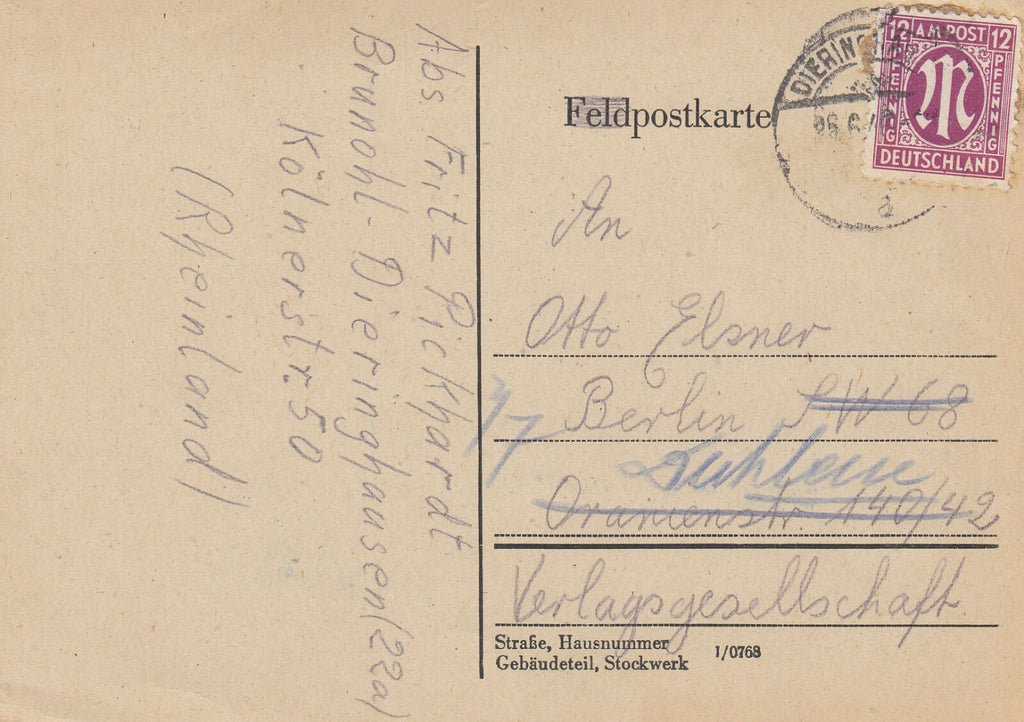 Abs. Fritz Pickhardt
Brunnohl-Dieringhausen (22a)
Kölnerstr. 50
(Rheinland)
Feldpostkarte
12 AM POST 12
PFENNIG
PFENNIG
M
DEUTSCHLAND
a
An
Otto Elsner
Berlin SW 68
Oranienstr. 140/42
Verlagsgesellschaft
Straße, Hausnummer
Gebäudeteil, Stockwerk
1/0768